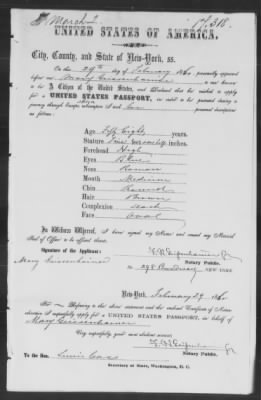 March 2
No. 318.
UNITED STATES OF AMERICA.
City, County, and State of New-York, ss.
On the 29th day of February 1860, personally appeared
before me Mary Geissenhainer
to be A Citizen of the United States, and declared that she wished to
apply for a UNITED STATES PASSPORT, in order to be protected during a
journey through Europe
as follows:
Age Fifty Eight years.
Stature Five feet inches.
Forehead High
Eyes Blue
Nose Roman
Mouth Medium
Chin Round
Hair Brown
Complexion
Face Oval
In Witness Whereof, I have signed my Name and issued my Notarial
Seal of Office to be affixed thereto.
Signature of the Applicant:
Notary Public.
Mary Geissenhainer
298 Broadway, NEW-YORK
New-York, February 29 1860
Sir: Referring to the above statement and the endorsed Certificate of Naturalization
I respectfully apply for a UNITED STATES PASSPORT, in behalf of
Mary Geissenhainer
Very respectfully, your most obedient servant,
Notary Public.
To the Hon. Lewis Cass
Secretary of State, Washington, D. C.